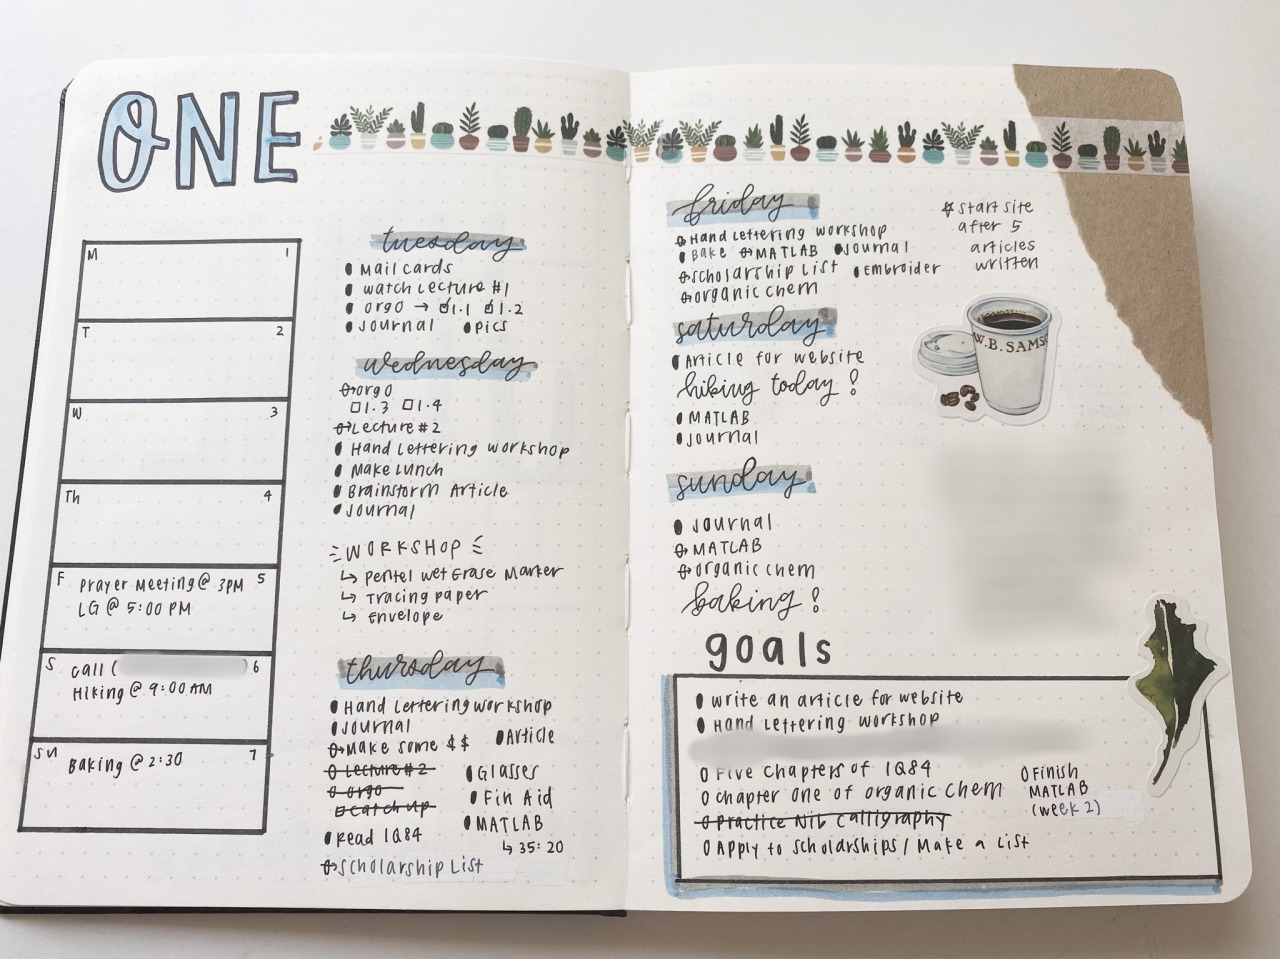 ONE
M 1
T 2
W 3
Th 4
F Prayer Meeting @ 3PM 5
LG @ 5:00 PM
S call ( ) 6
Hiking @ 9:00 AM
SU 7
Baking @ 2:30
tuesday
Mail cards
watch Lecture #1
orgo → 1.1 1.2
Journal pics
wednesday
orgo
1.3 1.4
Lecture #2
Hand Lettering workshop
Make Lunch
Brainstorm Article
Journal
WORKSHOP
↳ Pentel wet Erase Marker
↳ Tracing paper
↳ Envelope
thursday
Hand Lettering workshop
Journal
Make some $$ Article
Lecture #2 Glasses
orgo Fin Aid
catch up MATLAB
Read 1Q84 ↳ 35:20
Scholarship List
friday
Hand Lettering workshop
Bake MATLAB Journal
Scholarship List Embroider
organic chem
☆ start site
after 5
articles
written
saturday
Article for website
hiking today!
MATLAB
Journal
W.B. SAMS
sunday
Journal
MATLAB
organic chem
baking!
goals
write an article for website
Hand Lettering workshop
Five chapters of 1Q84
chapter one of organic chem
Practice Nib Calligraphy
Apply to scholarships / Make a List
Finish
MATLAB
(week 2)